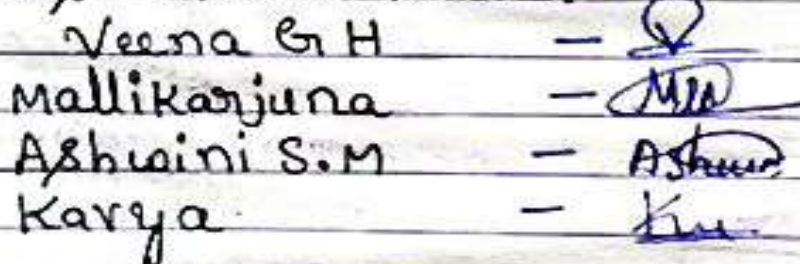 Veena G H -
Mallikarjuna -
Ashwini S.M - Ashwin
Kavya -